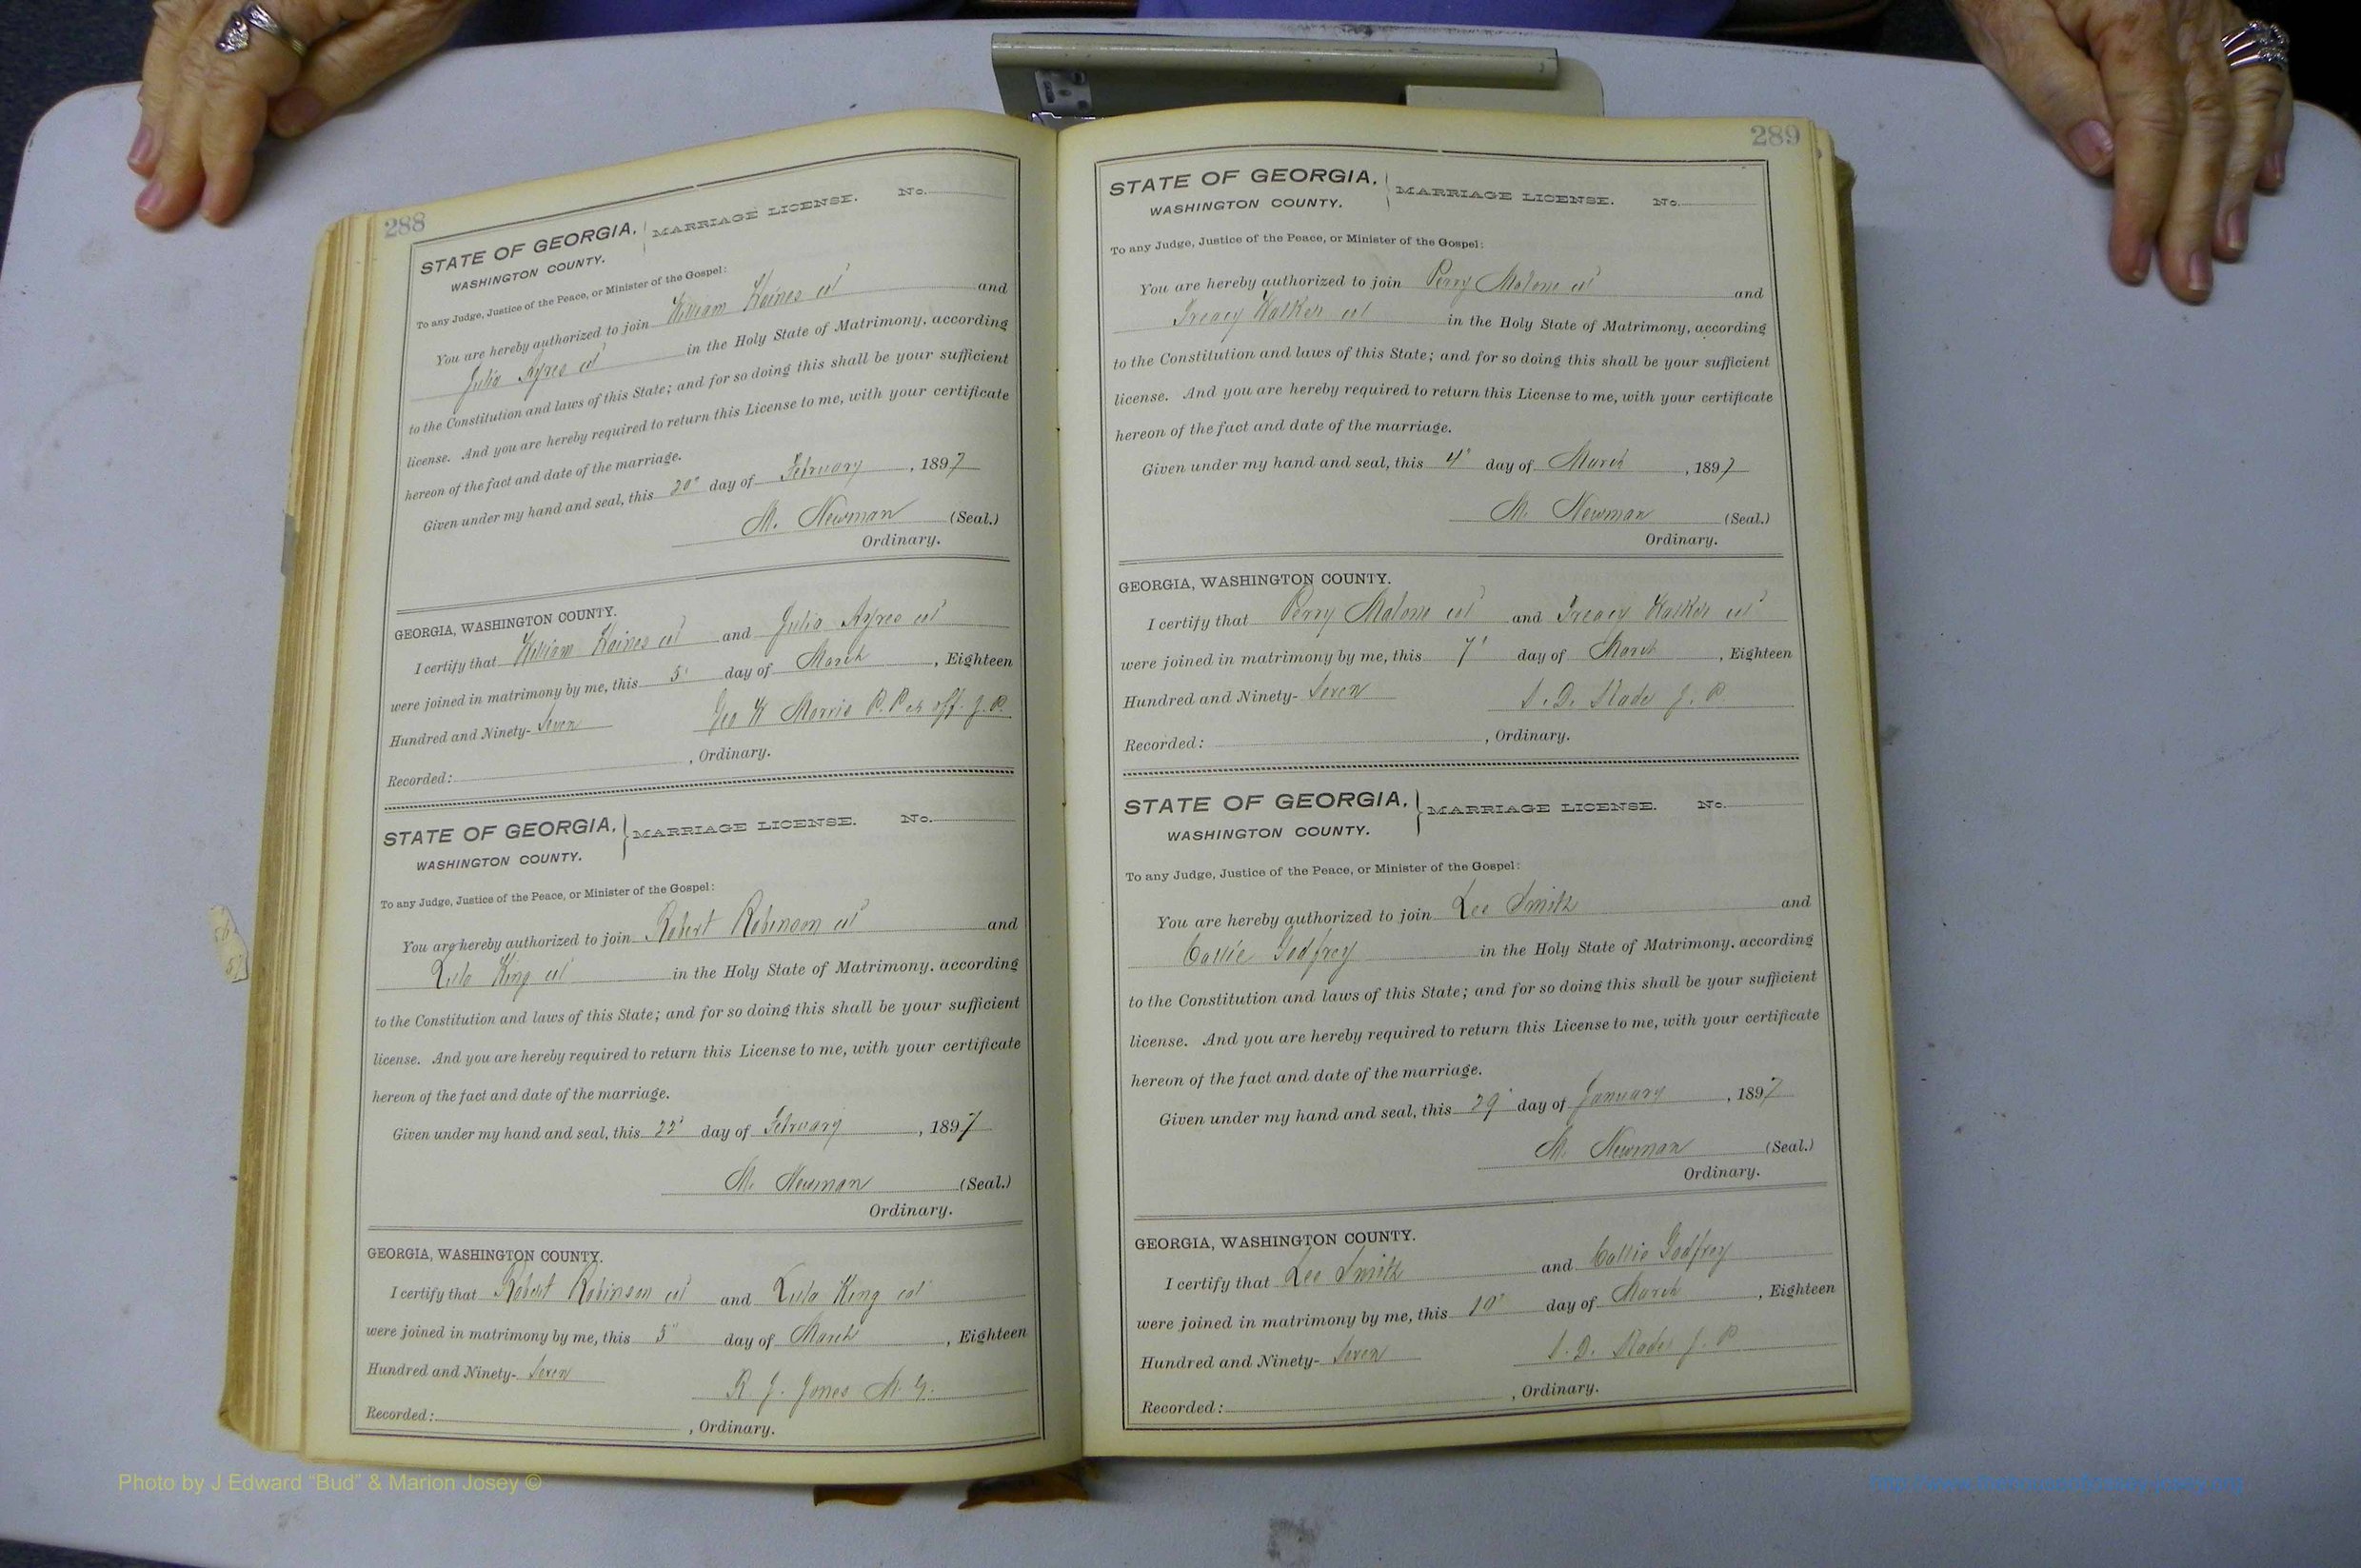 288
STATE OF GEORGIA,
WASHINGTON COUNTY.
MARRIAGE LICENSE. No.
To any Judge, Justice of the Peace, or Minister of the Gospel:
You are hereby authorized to join William Haines col and
Julia Ayres col in the Holy State of Matrimony, according
to the Constitution and laws of this State; and for so doing this shall be your sufficient
license. And you are hereby required to return this License to me, with your certificate
hereon of the fact and date of the marriage.
Given under my hand and seal, this 20" day of February, 1897
M. Newman (Seal.)
Ordinary.
GEORGIA, WASHINGTON COUNTY.
I certify that William Haines col and Julia Ayres col
were joined in matrimony by me, this 5' day of March, Eighteen
Hundred and Ninety- Seven Geo W Morris N.P. ex off. J.P.
Recorded: , Ordinary.
STATE OF GEORGIA,
WASHINGTON COUNTY.
MARRIAGE LICENSE. No.
To any Judge, Justice of the Peace, or Minister of the Gospel:
You are hereby authorized to join Robert Robinson col and
Lula King col in the Holy State of Matrimony, according
to the Constitution and laws of this State; and for so doing this shall be your sufficient
license. And you are hereby required to return this License to me, with your certificate
hereon of the fact and date of the marriage.
Given under my hand and seal, this 22' day of February, 1897
M. Newman (Seal.)
Ordinary.
GEORGIA, WASHINGTON COUNTY.
I certify that Robert Robinson col and Lula King col
were joined in matrimony by me, this 5" day of March, Eighteen
Hundred and Ninety- Seven R J. Jones M. G.
Recorded: , Ordinary.
289
STATE OF GEORGIA,
WASHINGTON COUNTY.
MARRIAGE LICENSE. No.
To any Judge, Justice of the Peace, or Minister of the Gospel:
You are hereby authorized to join Perry Malone col and
Treacy Walker col in the Holy State of Matrimony, according
to the Constitution and laws of this State; and for so doing this shall be your sufficient
license. And you are hereby required to return this License to me, with your certificate
hereon of the fact and date of the marriage.
Given under my hand and seal, this 4' day of March, 1897
M. Newman (Seal.)
Ordinary.
GEORGIA, WASHINGTON COUNTY.
I certify that Perry Malone col and Treacy Walker col
were joined in matrimony by me, this 7' day of March, Eighteen
Hundred and Ninety- Seven S. D. Slade J. P.
Recorded: , Ordinary.
STATE OF GEORGIA,
WASHINGTON COUNTY.
MARRIAGE LICENSE. No.
To any Judge, Justice of the Peace, or Minister of the Gospel:
You are hereby authorized to join Lee Smith and
Callie Godfrey in the Holy State of Matrimony, according
to the Constitution and laws of this State; and for so doing this shall be your sufficient
license. And you are hereby required to return this License to me, with your certificate
hereon of the fact and date of the marriage.
Given under my hand and seal, this 29' day of January, 1897
M. Newman (Seal.)
Ordinary.
GEORGIA, WASHINGTON COUNTY.
I certify that Lee Smith and Callie Godfrey
were joined in matrimony by me, this 10' day of March, Eighteen
Hundred and Ninety- Seven S. D. Slade J. P
Recorded: , Ordinary.
Photo by J Edward “Bud” & Marion Josey ©